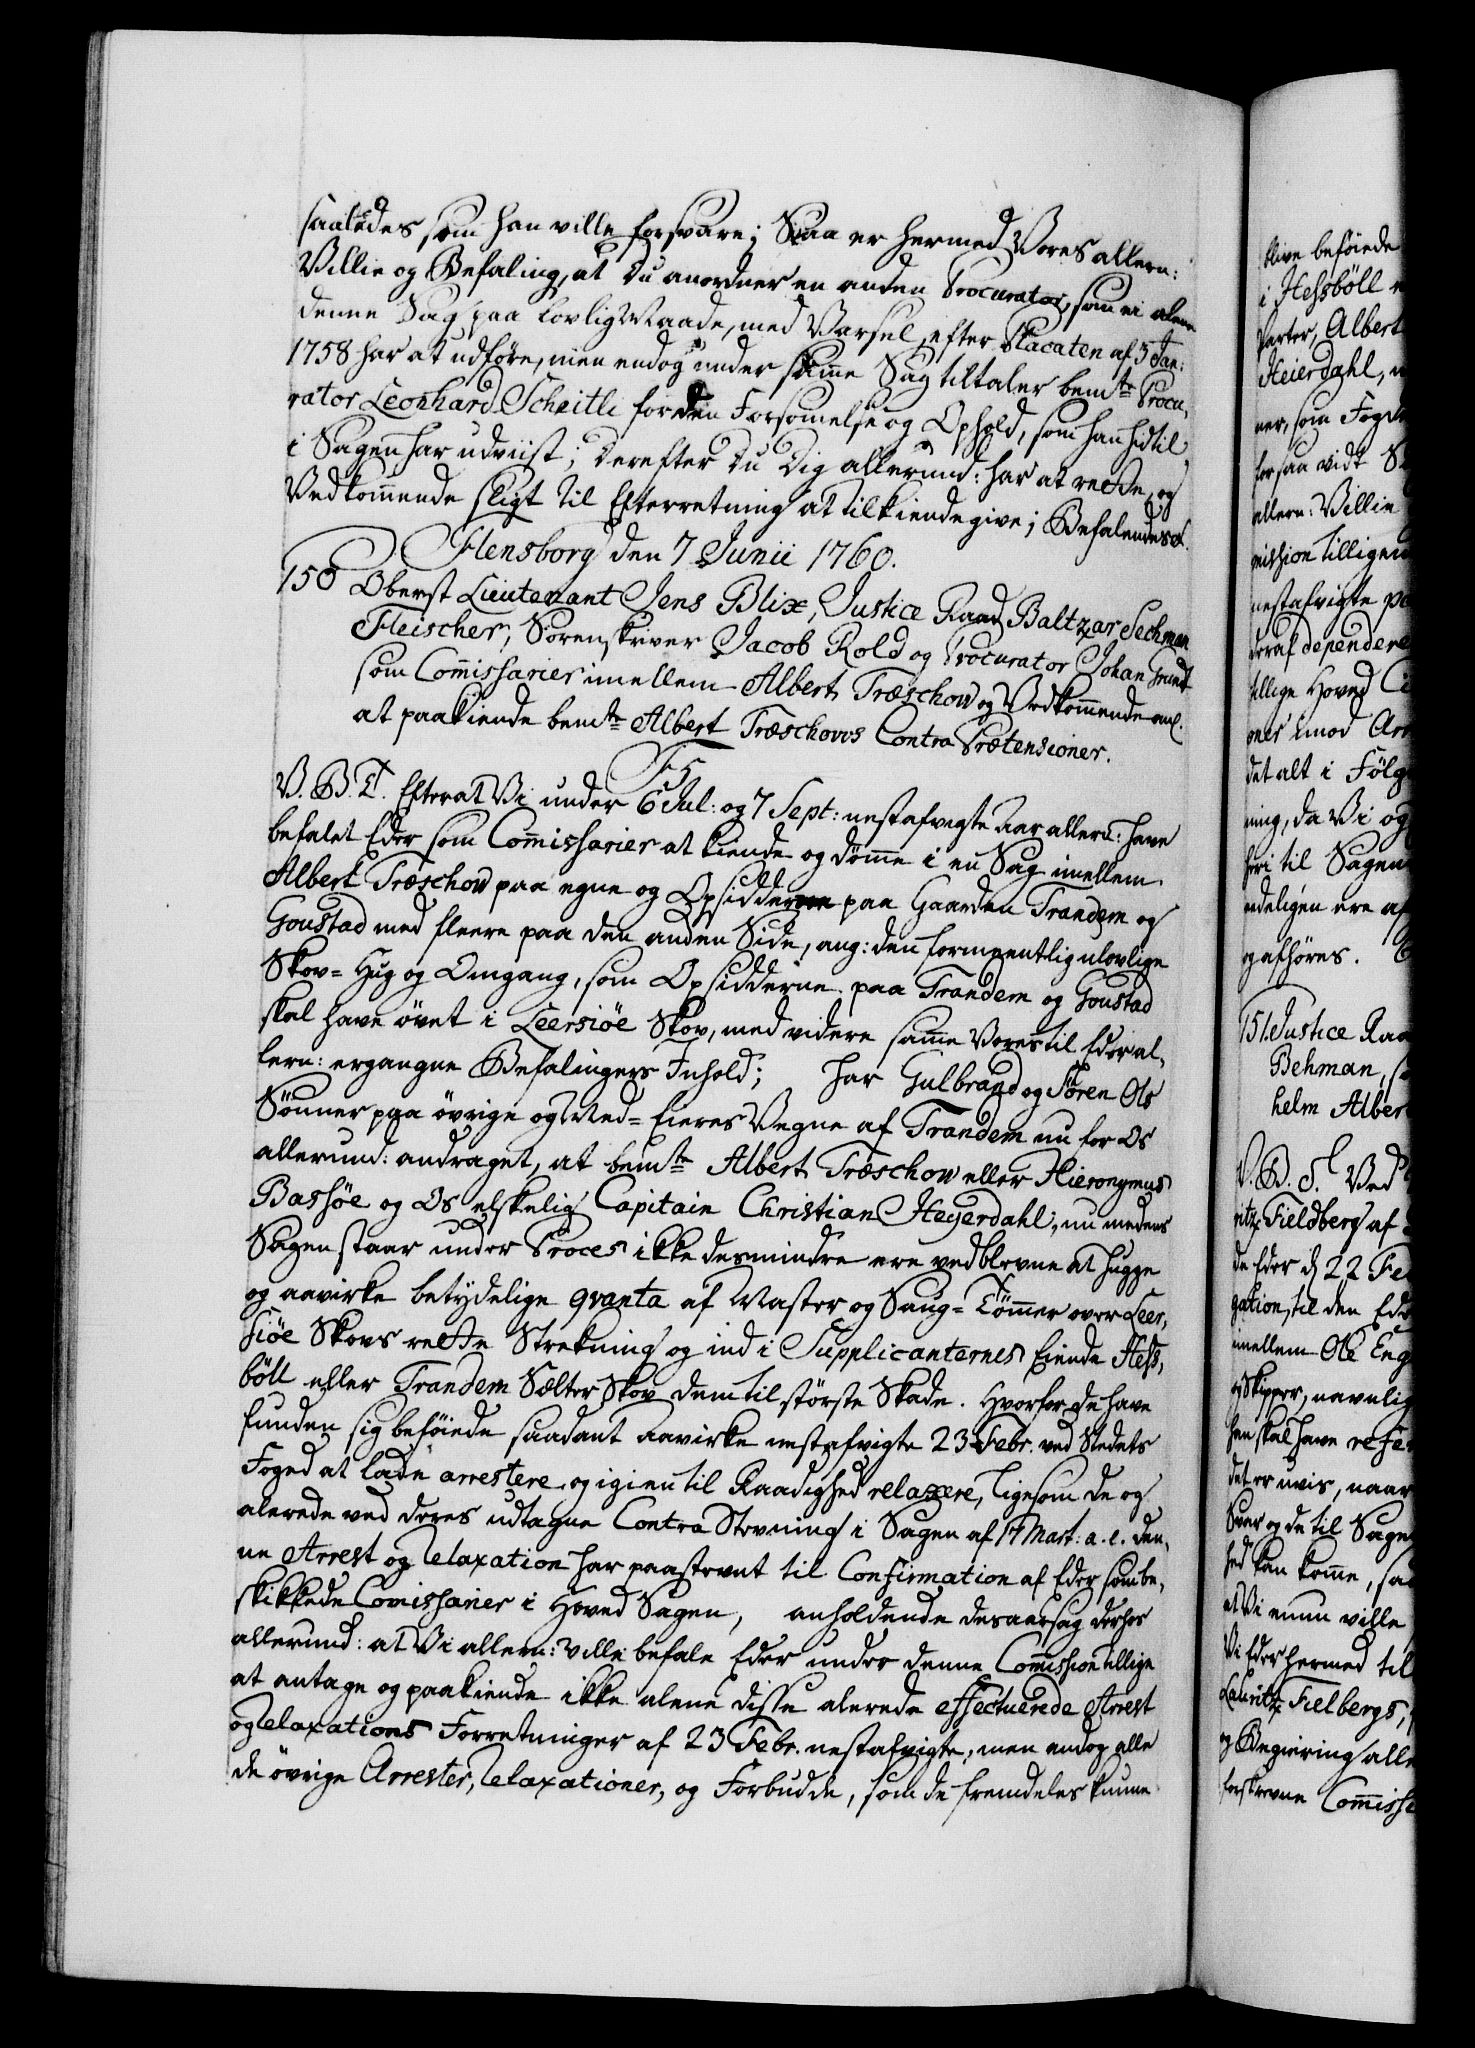 saaledes som han ville forsvare; Saa er hermed Vores allern:
Villie og Befaling, at Du anordner en anden Procurator, som ei alene
denne Sag paa lovlig Maade, med Varsel efter Placaten af 3 Jan:
1758 har at udføre, men endog under samme Sag tiltaler bemte Procu,
rator Leonhard Scheitli for den Forsømelse og Ophold, som han hidtil
i Sagen har udviist; Derefter Du Dig allerund: har at rette, og
Vedkommende sligt til Efterretning at tilkiendegive; Befalendes
Flensborg den 7 Junii 1760.
150 Oberst Lieutenant Jens Blix, Justice Raad Baltzar Sechman
Fleischer, Sorenskriver Jacob Rold og Procurator Johan Grundt
som Comissarier imellem Albert Træschow og Vedkommende anl.
at paakiende bemte Albert Træschows Contra Prætensioner.
F5.
V. B. T. Efterat Vi under 6 Jul: og 7 Sept: nestafvigte Aar allern: have
befalet Eder som Comissarier at kiende og dømme i en Sag imellem
Albert Træschow paa egne og Opsidderne paa Gaarden Trandem og
Goustad med fleere paa den anden Side, ang: den formeentlig ulovlige
Skov-Hug og Omgang, som Opsidderne paa Trandem og Goustad
skal have øvet i Leersiøe Skov, med videre samme Vores til Eder al,
lern: ergangne Befalingers Inhold; har Gulbrand og Søren Ols
Sønner paa øvrige og Med-Eieres Vegne af Trandem nu for Os
allerund: andraget, at bemte Albert Træschow eller Hieronymus
Bassøe og Os elskelig Capitain Christian Heyerdahl, nu medens
Sagen staar under Proces ikke desmindre ere vedblevne at hugge
og aavirke betydelige qvanta af Master og Saug-Tømmer over Leer,
siøe Skovs rette Strekning og ind i Supplicanternes Eiende Hess,
böll eller Trandem Sælter Skov dem til største Skade. Hvorfor de have
funden sig beføiede saadant Aavirke nestafvigte 23 Febr. ved Stedets
Foged at lade arrestere og igien til Raadighed relaxere, ligesom de og
alerede ved deres udtagne Contra Stevning i Sagen af 17 Mart: a. c. den,
ne Arrest og Relaxation har paastevnt til Confirmation af Eder som be,
skikkede Comissarier i Hoved Sagen, anholdende desaarsag derhos
allerund: at Vi allern: ville befale Eder under denne Comission tillige
at antage og paakiende ikke alene disse alerede effectuerede Arrest
og Relaxations Forretninger af 23 Febr. nestafvigte, men endog alle
de øvrige Arrester, Relaxationer, og Forbudde, som de fremdeles kunne
blive beføiede
i Hessböll
Parter, Albert
Heierdahl,
ner, som Foged
for saa vidt
allern: Villie
mission tillige
nestafvigte
deraf dependere
tillige Hoved
ones imod
det alt i Følg
ning, da Vi og
til Sagen
ere
og afhøres.
151. Justice Raa
Behman,
helm Alber
V. B. T. Ved
ritz Fieldberg af
de Eder d 22 Fe
gation, til den Ede
imellem Ole Eng
og Skipper, navnlig
han skal have refe
det er uvis, naar
Svar og de til Sagen
hed kan komme, saa
at Vi ville
Vi Eder hermed til
Lauritz Fielbergs,
og Begiering alle
forskrevne Commissa